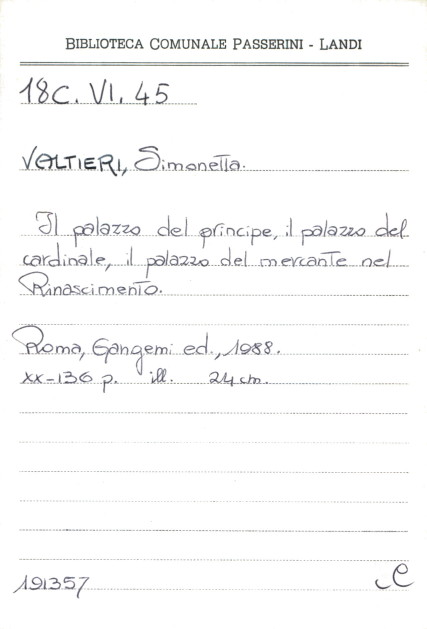 BIBLIOTECA COMUNALE PASSERINI - LANDI
18C. VI. 45
VALTIERI, Simonetta.
Il palazzo del principe, il palazzo del
cardinale, il palazzo del mercante nel
Rinascimento.
Roma, Gangemi ed., 1988.
XX-136 p. ill. 24 cm.
191357